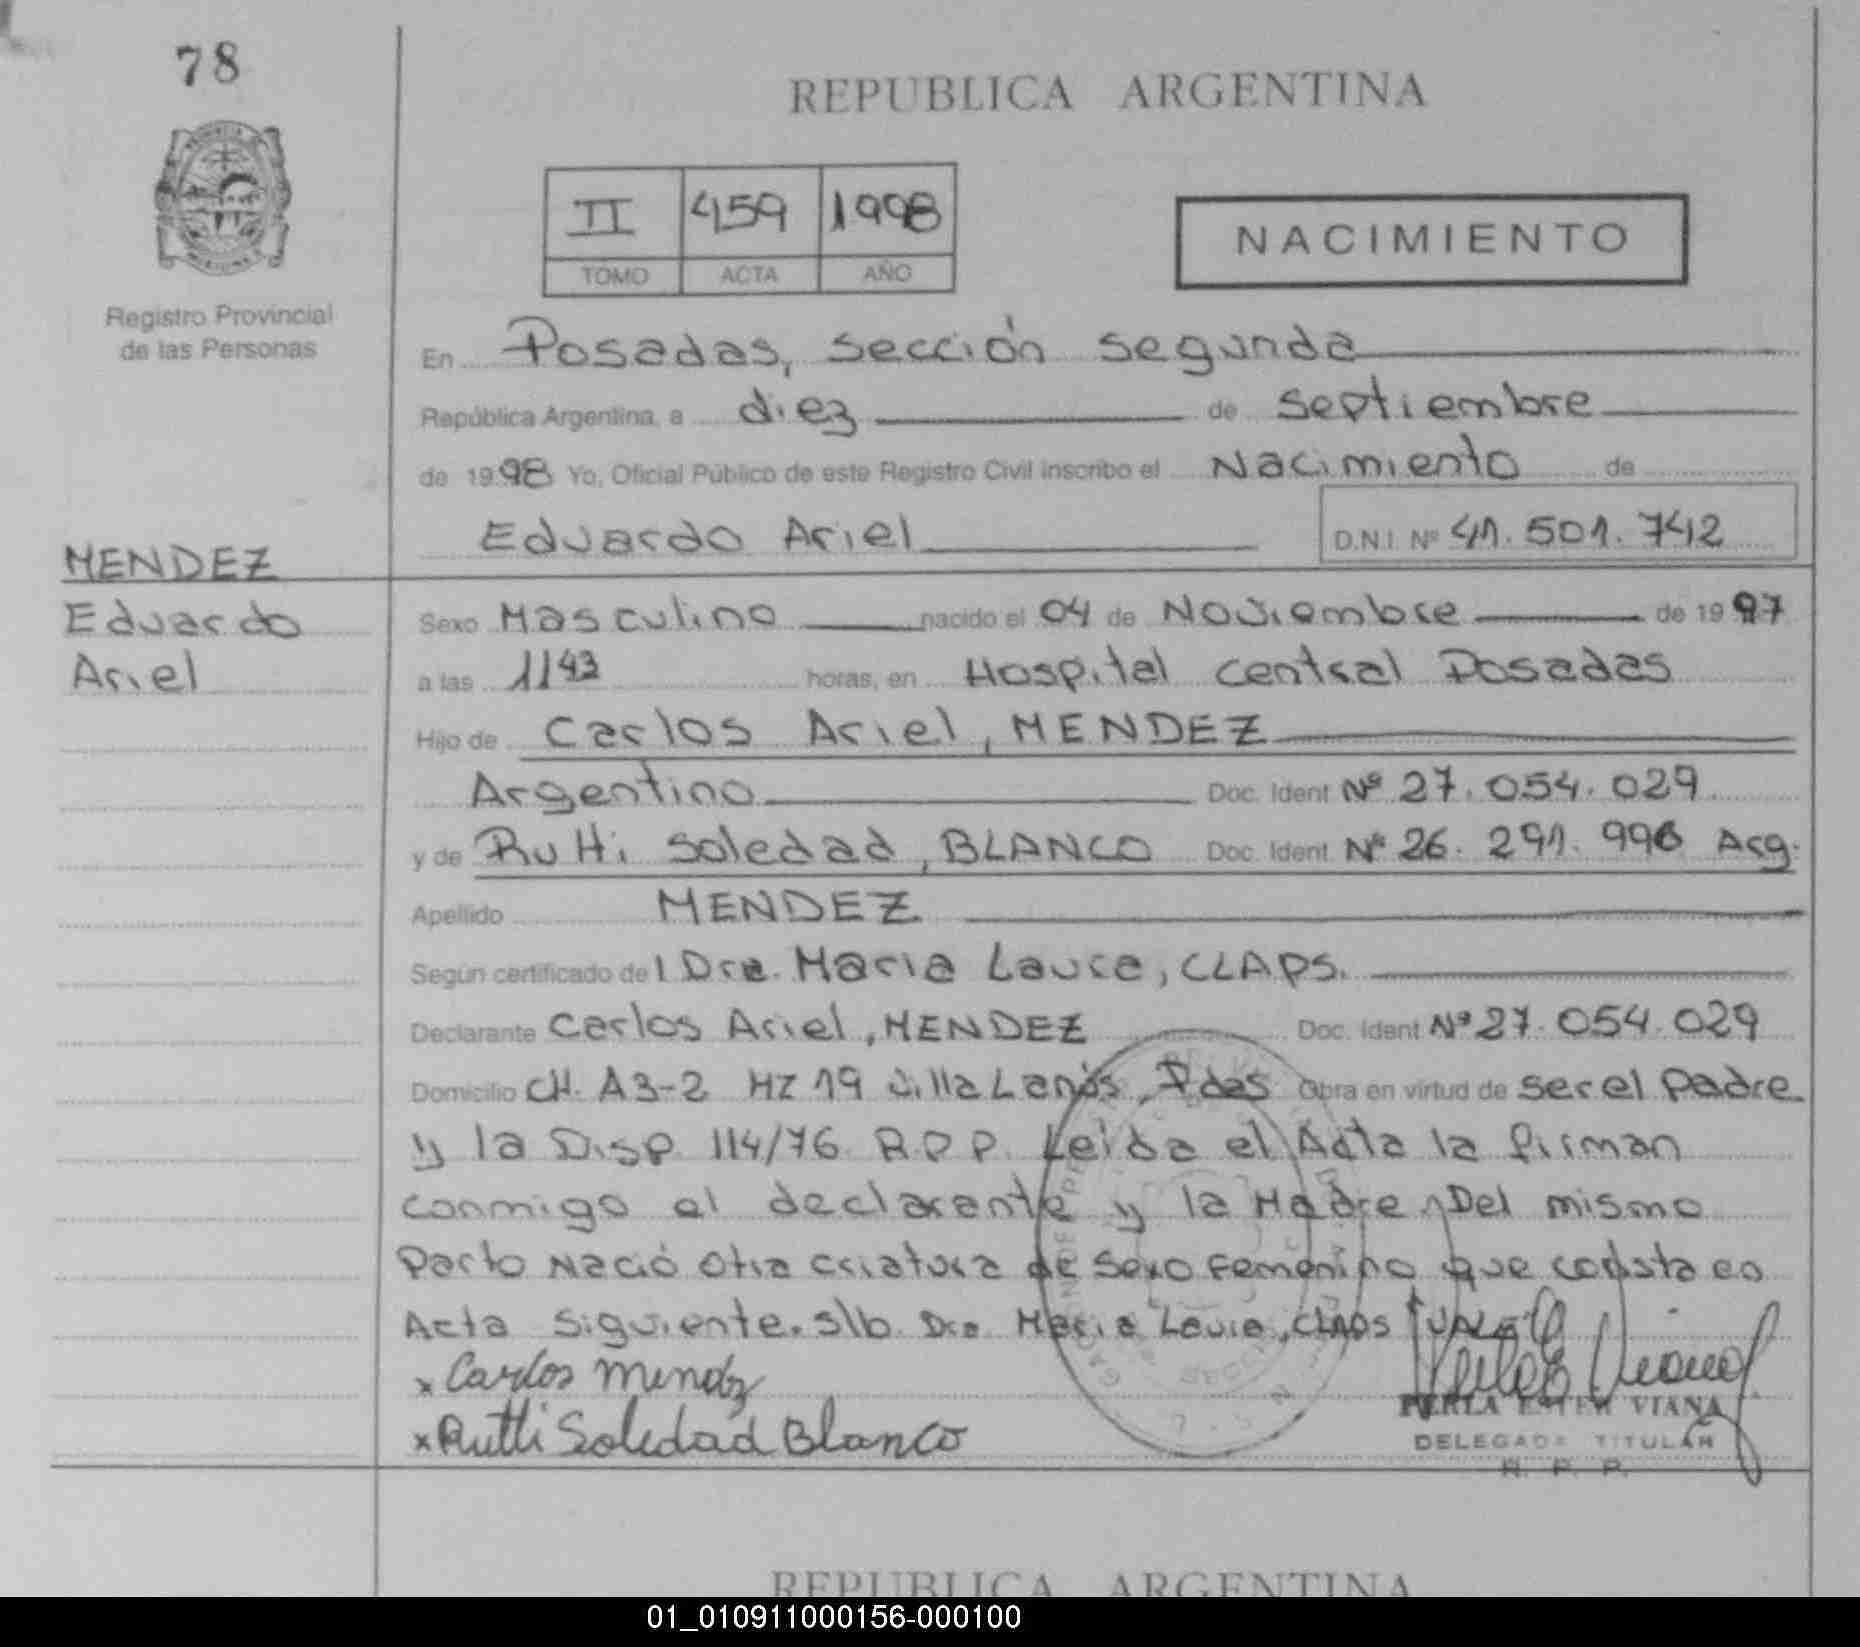 78
REPUBLICA ARGENTINA
II 459 1998
TOMO ACTA AÑO
NACIMIENTO
Registro Provincial
de las Personas
En Posadas, sección segunda
República Argentina, a diez de septiembre
de 1998 Yo, Oficial Público de este Registro Civil inscribo el Nacimiento de
Eduardo Ariel D.N.I. Nº 41.501.742
MENDEZ
Eduardo
Ariel
Sexo Masculino nacido el 04 de Noviembre de 1997
a las 1143 horas, en Hospital Central Posadas
Hijo de Carlos Ariel, MENDEZ
Argentino Doc. Ident Nº 27.054.029
y de Rutti Soledad, BLANCO Doc. Ident Nº 26.291.996 Arg.
Apellido MENDEZ
Según certificado de Dra. Maria Laura, CLAPS.
Declarante Carlos Ariel, MENDEZ Doc. Ident Nº 27.054.029
Domicilio CH. A3-2 MZ 19 Villa Lanús, Pdas Obra en virtud de ser el Padre
y la Disp. 114/76 R.P.P. Leida el Acta la firman
conmigo el declarante y la Madre. Del mismo
Parto Nació otra criatura de sexo femenino que consta en
Acta siguiente. s/b. Dra Maria Laura, CLAPS VALE
x Carlos Mendez
x Rutti Soledad Blanco
PERLA ESTER VIANA
DELEGADA TITULAR
R. P. P.
REPUBLICA ARGENTINA
01_010911000156-000100